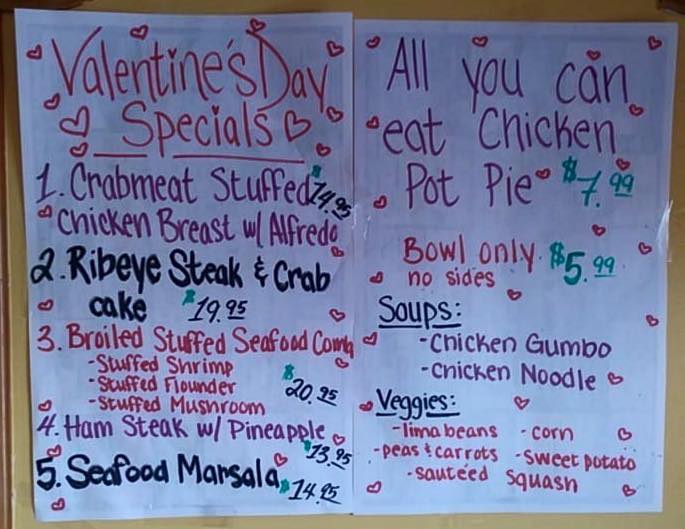 Valentine's Day
Specials
1. Crabmeat Stuffed $14.95
Chicken Breast w/ Alfredo
2. Ribeye Steak & Crab
cake $19.95
3. Broiled Stuffed Seafood Combo
-Stuffed Shrimp
-Stuffed Flounder
-Stuffed Mushroom
$20.95
4. Ham Steak w/ Pineapple
$13.95
5. Seafood Marsala
$14.95
All you can
eat Chicken
Pot Pie $7.99
Bowl only $5.99
no sides
Soups:
-Chicken Gumbo
-Chicken Noodle
Veggies:
-lima beans -corn
-peas & carrots -sweet potato
-sauteéd squash